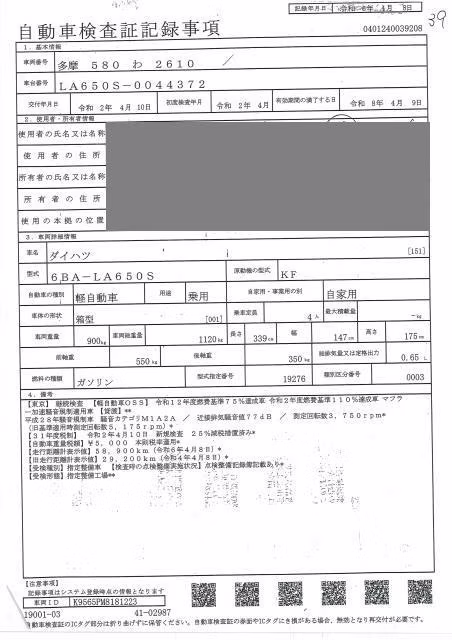 記録年月日 令和 6年 4月 8日
39
自動車検査証記録事項
0401240039208
1. 基本情報
車両番号 多摩 580 わ 2610
車台番号 LA650S-0044372
交付年月日 令和 2年 4月 10日 初度検査年月 令和 2年 4月 有効期間の満了する日 令和 8年 4月 9日
2. 使用者・所有者情報
使用者の氏名又は名称
使用者の住所
所有者の氏名又は名称
所有者の住所
使用の本拠の位置
3. 車両詳細情報
車名 ダイハツ [151]
型式 6BA-LA650S 原動機の型式 KF
自動車の種別 軽自動車 用途 乗用 自家用・事業用の別 自家用
車体の形状 箱型 [001] 乗車定員 4人 最大積載量 -kg
車両重量 900kg 車両総重量 1120kg 長さ 339cm 幅 147cm 高さ 175cm
前軸重 550kg 後軸重 350kg 総排気量又は定格出力 0.65 L
燃料の種類 ガソリン 型式指定番号 19276 類別区分番号 0003
4. 備考
【東京】 継続検査 【軽自動車OSS】 令和12年度燃費基準75%達成車 令和2年度燃費基準110%達成車 マフラ
ー加速騒音規制適用車 【貸渡】**
平成28年騒音規制車 騒音カテゴリM1A2A / 近接排気騒音値77dB / 測定回転数3,750rpm*
(旧基準適用時測定回転数5,175rpm)*
【31年度税制】 令和2年4月10日 新規検査 25%減税措置済み*
【自動車重量税】¥5,000 本則税率適用*
【走行距離計表示値】58,900km(令和6年4月8日)*
【旧走行距離計表示値】29,200km(令和4年4月8日)*
【受検種別】指定整備車 【検査時の点検整備実施状況】点検整備記録簿記載あり*
【受検形態】指定整備工場**
【注意事項】
記録事項はシステム登録時点の情報となります
車両ID K9565PM8181223
19001-03 41-02987
自動車検査証のICタグ部分は折り曲げずに保管ください。自動車検査証の券面やICタグにき損がある場合、無効となり再交付が必要です。